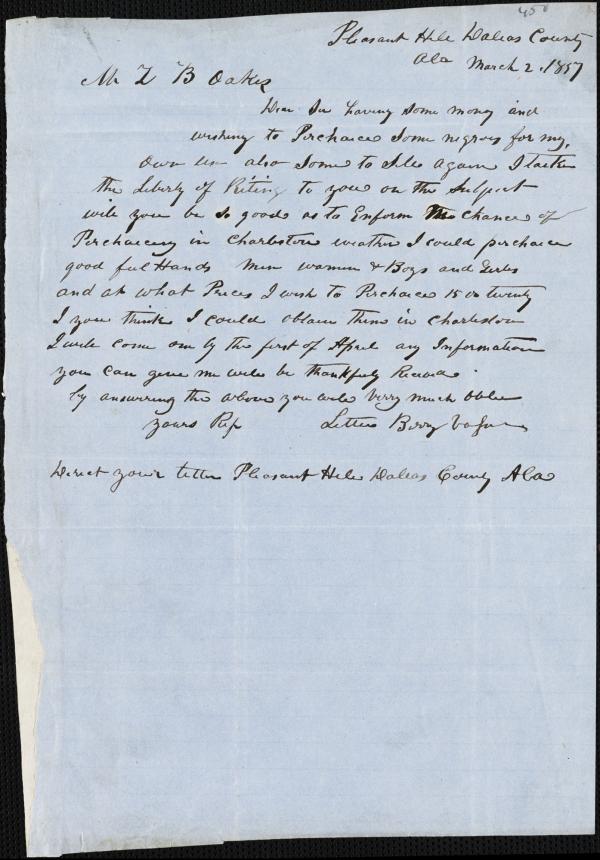 450
Pleasant Hill Dallas County
Ala March 2, 1857
Mr Z B Oakes
Dear Sir having some money and
wishing to Perchaice some negroes for my
own use also some to Sell again I take
the Liberty of Riting to you on the Subject
will you be so good as to Enform the Chance of
Perchaicing in Charleston weather I could perchaice
good ful Hands Men women & Boys and Girls
and at what Prices I wish to Perchaice 15 or twenty
I you think I could obtain them in Charleston
I will come on by the first of April any Information
you can give me will be thankfuly Received
by answering the above you will verry much oblige
yours Rep
Direct your letter Pleasant Hill Dallas County Ala